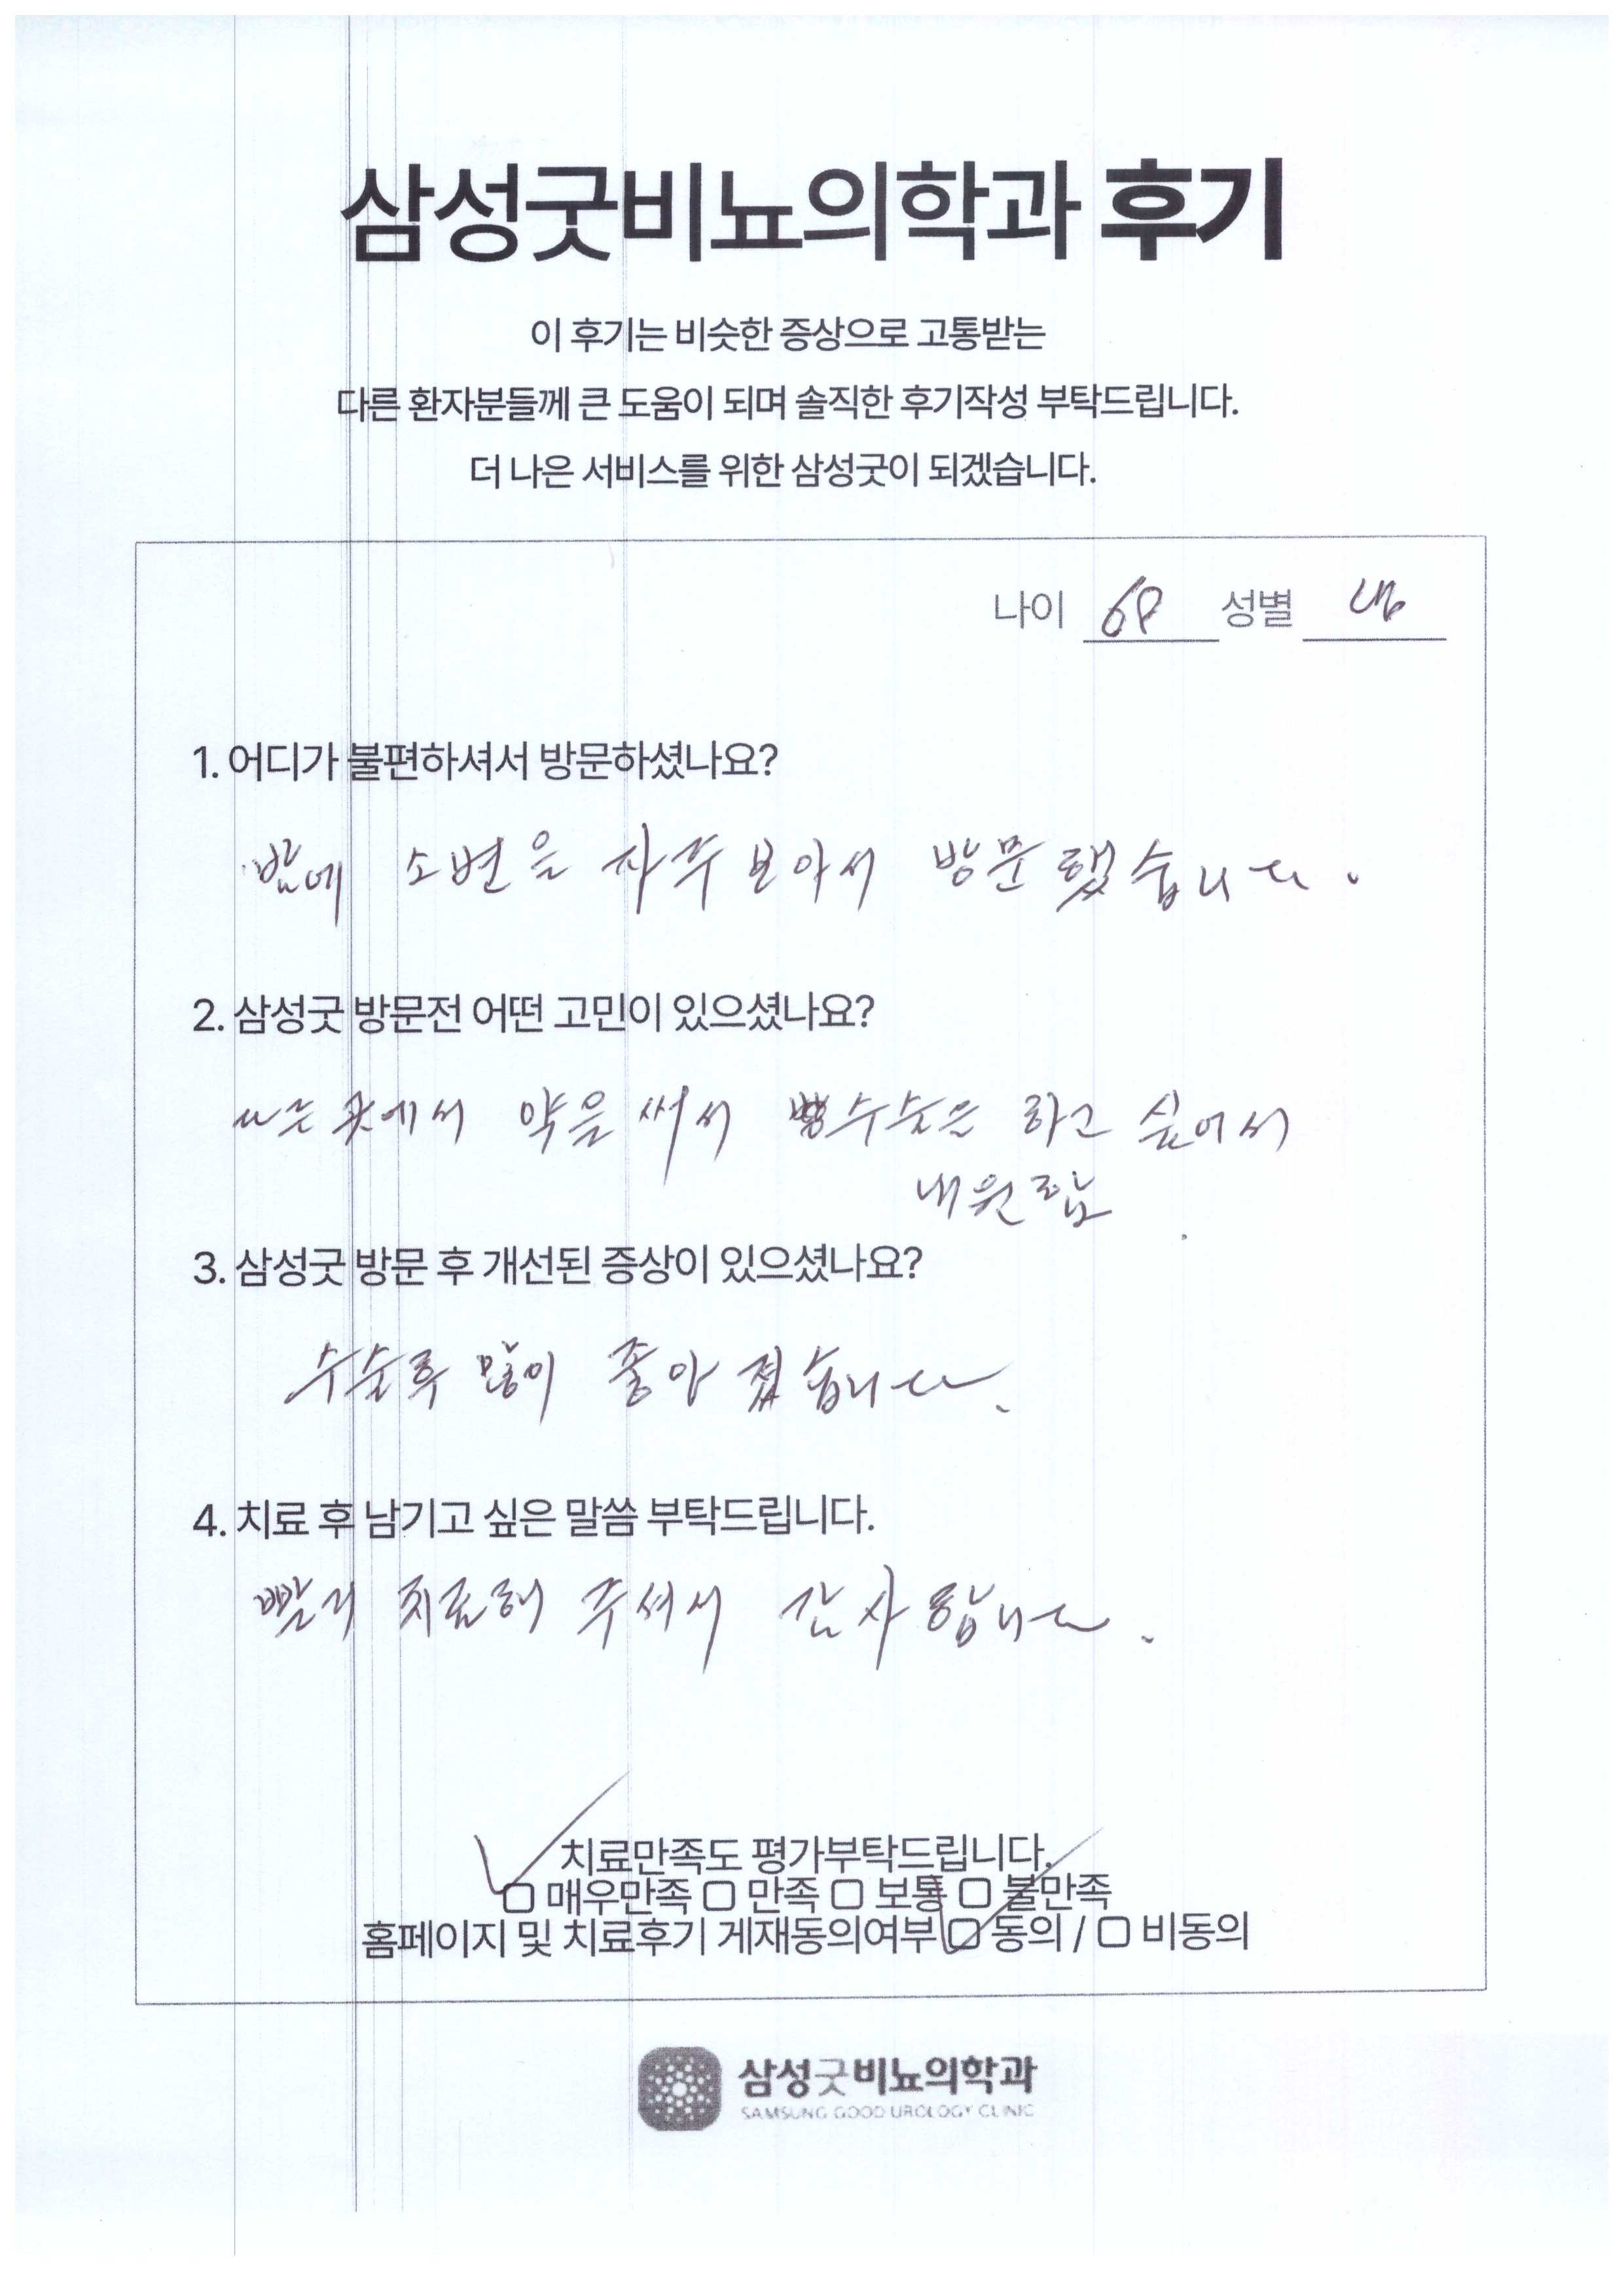 삼성굿비뇨의학과 후기
이 후기는 비슷한 증상으로 고통받는
다른 환자분들께 큰 도움이 되며 솔직한 후기작성 부탁드립니다.
더 나은 서비스를 위한 삼성굿이 되겠습니다.
나이 68 성별 남
1. 어디가 불편하셔서 방문하셨나요?
밤에 소변을 자주 보아서 방문했습니다.
2. 삼성굿 방문전 어떤 고민이 있으셨나요?
다른 곳에서 약을 써서 수술은 하고 싶어서
내원함
3. 삼성굿 방문 후 개선된 증상이 있으셨나요?
수술후 많이 좋아졌습니다.
4. 치료 후 남기고 싶은 말씀 부탁드립니다.
빨리 치료해 주셔서 감사합니다.
치료만족도 평가부탁드립니다.
매우만족 만족 보통 불만족
홈페이지 및 치료후기 게재동의여부 동의 / 비동의
삼성굿비뇨의학과
SAMSUNG GOOD UROLOGY CLINIC